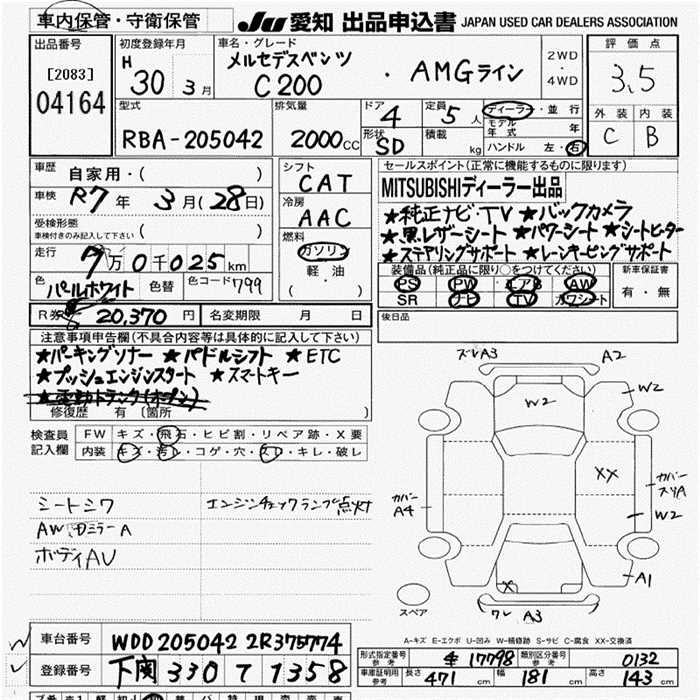 車内保管・守衛保管 JU 愛知 出品申込書 JAPAN USED CAR DEALERS ASSOCIATION
出品番号 初度登録年月 車名・グレード 評価点
[2083] H 30 3月 メルセデスベンツ 2WD
04164 C200 ・ AMGライン 4WD 3.5
型式 排気量 ドア 4 定員 5人 ディーラー・並行 外装 内装
モデル年式 年 C B
RBA-205042 2000cc 形状 SD 積載 kg ハンドル 左・右
車歴 自家用・( ) シフト セールスポイント(正常に機能するものに限ります)
車検 R7年 3月(28日) CAT MITSUBISHIディーラー出品
受検形態 冷房 ★純正ナビ・TV ★バックカメラ
車検付きのみ記入して下さい ( ) AAC ★黒レザーシート ★パワーシート ★シートヒーター
走行 7万0千025km 燃料 ★ステアリングサポート ★レーンキーピングサポート
ガソリン 装備品(純正品に限り○をつけてください) 新車保証書
色 パールホワイト 色替 色コード 799 軽油 PS PW エアB AW 有・無
( ) SR ナビ TV カワシート
R券 20,370円 名変期限 月 日 後日品
注意事項申告欄(不具合内容等は具体的に記入して下さい)
★パーキングソナー ★パドルシフト ★ETC
★プッシュエンジンスタート ★スマートキー
★電動トランク(オープン)
修復歴 有 [箇所 ]
検査員 FW キズ・飛石・ヒビ割・リペア跡・X要
記入欄 内装 キズ・汚レ・コゲ・穴・スレ・キレ・破レ
シートシワ エンジンチェックランプ点灯
AW ミラーA
ボディAU
ズレA3 A2
W2 W2
XX
カバーA4 カバースリA
W2
X A1
スペア ワレ A3
A-キズ E-エクボ U-凹み W-補修跡 S-サビ C-腐食 XX-交換済
車台番号 WDD2050422R375774 形式指定番号 参考 17798 類別区分番号 参考 0132
登録番号 下関 330 T 1358 車庫証明用 参考 長さ 471cm 幅 181cm 高さ 143cm